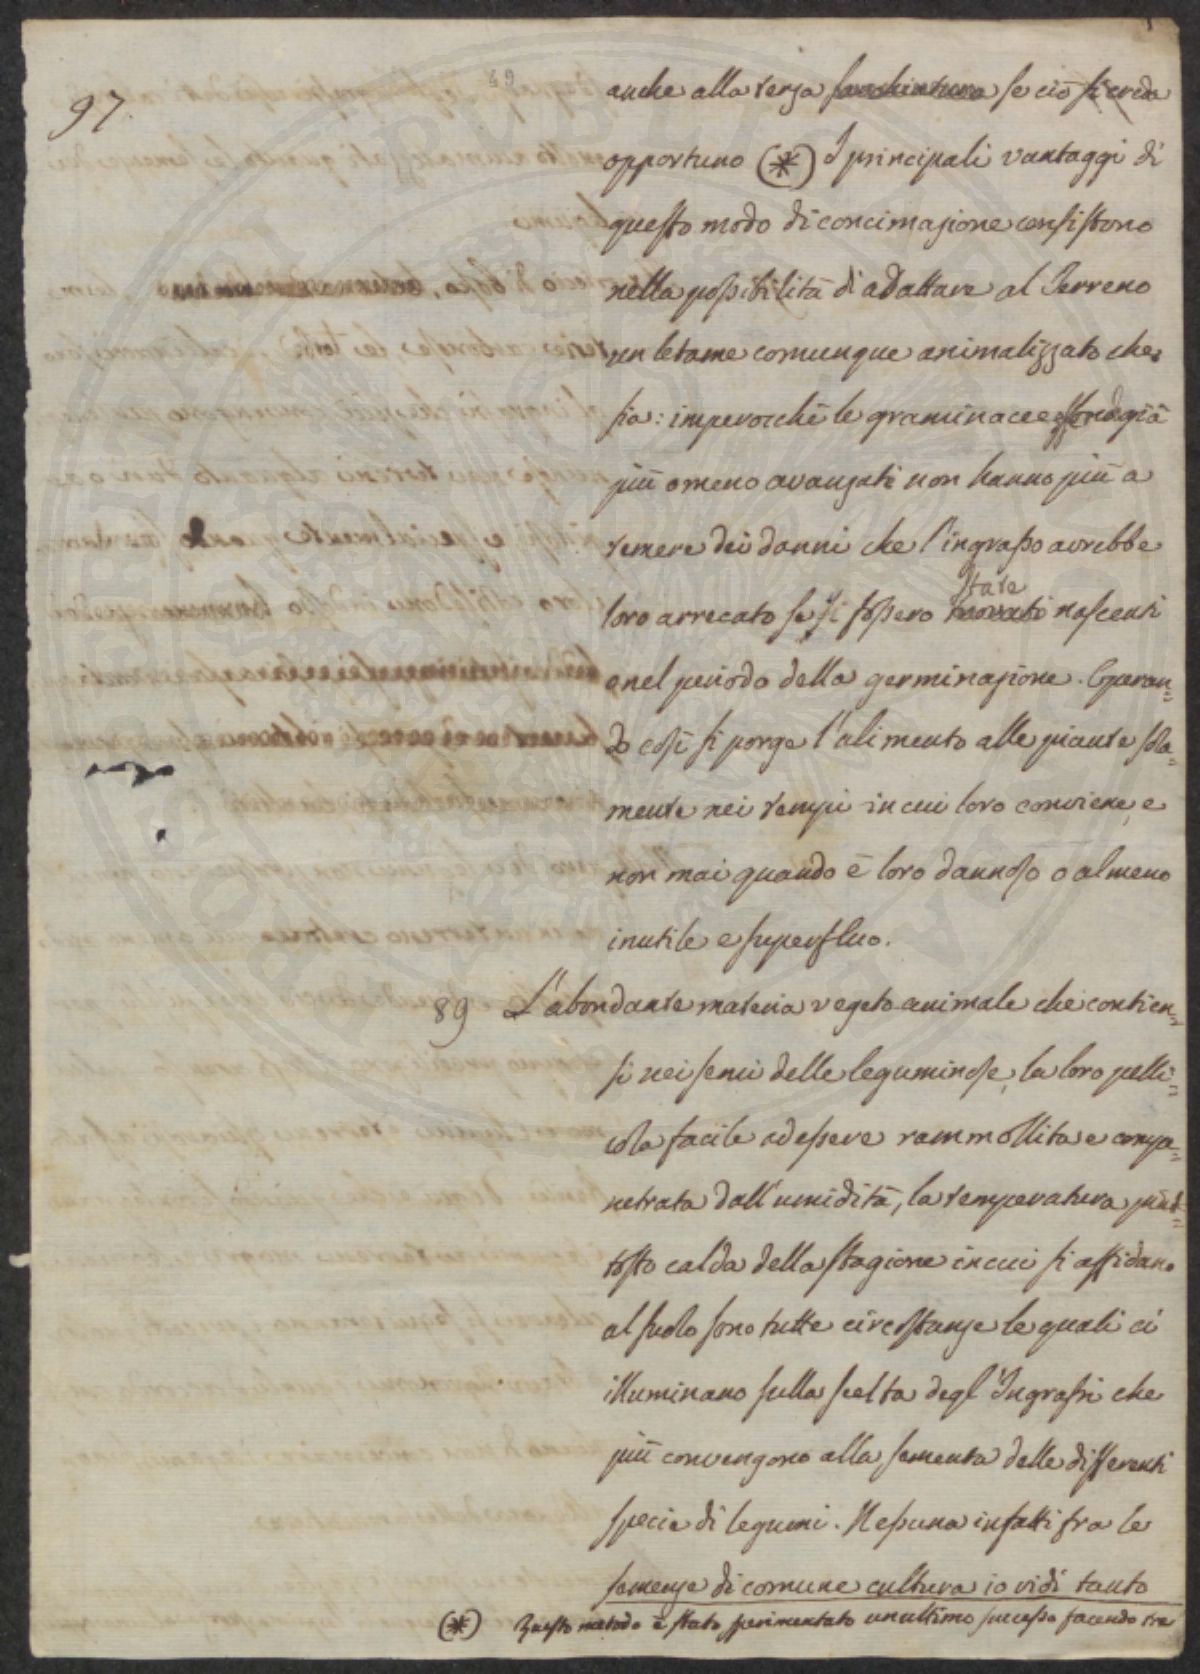 97.
anche alla terza sarchiatura se ciò si creda
opportuno (*) I principali vantaggi di
questo modo di concimazione consistono
nella possibilità di adattare al Terreno
un letame comunque animalizzato che
sia: imperocchè le graminacee essendo già
più o meno avanzati non hanno più a
temere dei danni che l'ingrasso avrebbe
state
loro arrecato se si fossero trovati nascenti
o nel periodo della germinazione. Operan=
do così si porge l'alimento alle piante sola=
mente nei tempi in cui loro conviene, e
non mai quando è loro dannoso o almeno
inutile e superfluo.
89 L'abondante materia vegeto animale che contien=
si nei semi delle leguminose, la loro pelli=
cola facile ad essere rammollita e compe=
netrata dall'umidità, la temperatura piut=
tosto calda della stagione in cui si affidano
al suolo sono tutte circostanze le quali ci
illuminano sulla scelta degl'Ingrassi che
più convengono alla sementa delle differenti
specie di legumi. Nessuna infatti fra le
semenze di comune cultura io vidi tanto
(*) Questo metodo è stato sperimentato un ultimo successo facendo